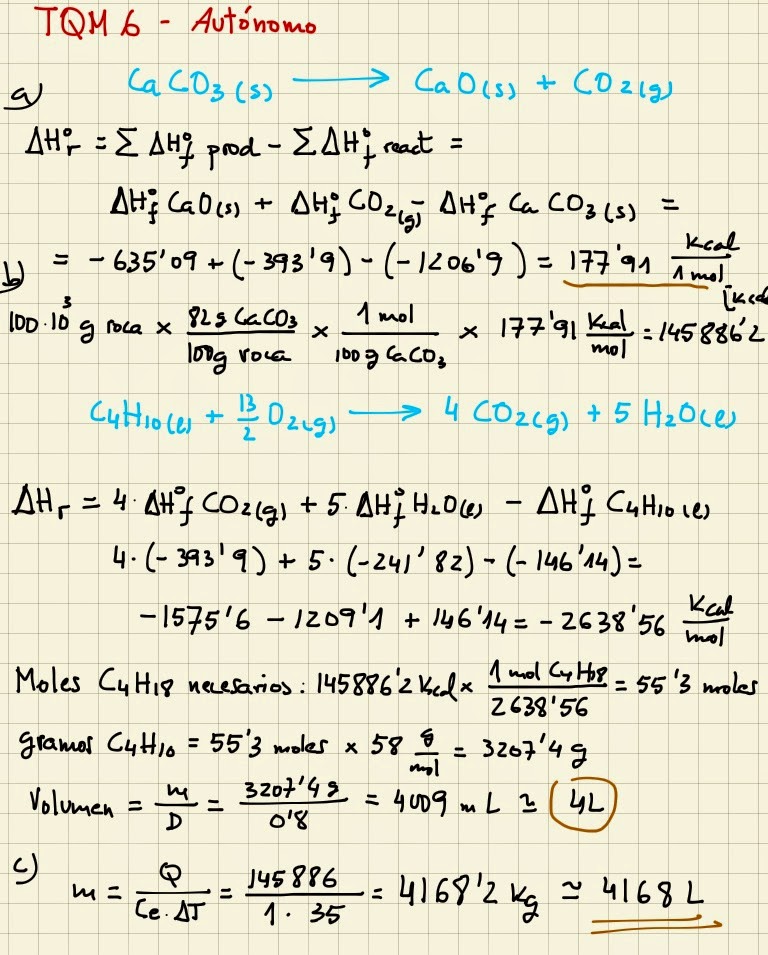 TQM 6 - Autónomo
a) CaCO3(s) → CaO(s) + CO2(g)
ΔH°r = Σ ΔH°f prod - Σ ΔH°f react =
ΔH°f CaO(s) + ΔH°f CO2(g) - ΔH°f CaCO3(s) =
= -635'09 + (-393'9) - (-1206'9) = 177'91 Kcal/1 mol
b) 100·10³ g roca × 82g CaCO3/100g roca × 1 mol/100g CaCO3 × 177'91 Kcal/mol = 145886'2 [Kcal
C4H10(l) + 13/2 O2(g) → 4 CO2(g) + 5 H2O(l)
ΔHr = 4·ΔH°f CO2(g) + 5·ΔH°f H2O(l) - ΔH°f C4H10(l)
4·(-393'9) + 5·(-241'82) - (-146'14) =
-1575'6 - 1209'1 + 146'14 = -2638'56 Kcal/mol
Moles C4H18 necesarios: 145886'2 Kcal × 1 mol C4H18/2638'56 = 55'3 moles
gramos C4H10 = 55'3 moles × 58 g/mol = 3207'4 g
Volumen = m/D = 3207'4 g/0'8 = 4009 mL ≃ 4L
c) m = Q/Ce·ΔT = 145886/1·35 = 4168'2 kg ≃ 4168 L